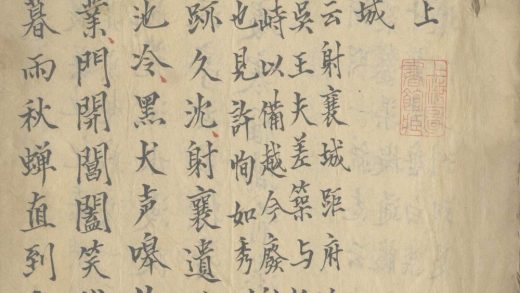 上
城
云射襄城距府
吳王夫差築与
峙以備越今廢
也見許恂如秀
跡久沈射襄遺
池冷黑犬声嗥
業門閉閶闔笑
暮雨秋蟬直到